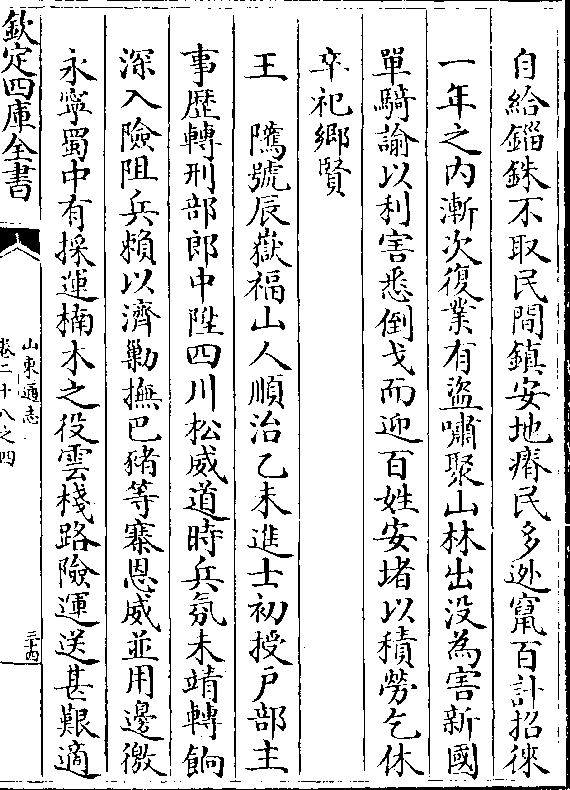 自給錙銖不取民間鎮安地瘠民多逊竄百計招徠
一年之内漸次復業有盜嘯聚山林出没為害新國
單騎諭以利害悉倒戈而迎百姓安堵以積勞乞休
卒祀鄉賢
王 隲號辰嶽福山人順治乙未進士初授戶部主
事歴轉刑部郎中陞四川松威道時兵氛未靖轉餉
深入險阻兵賴以濟勦撫巴豬等寨恩威並用邊徼
永寧蜀中有採運楠木之役雲棧路險運送甚艱適
欽定四庫全書
山東通志
卷二十八之四
三十四